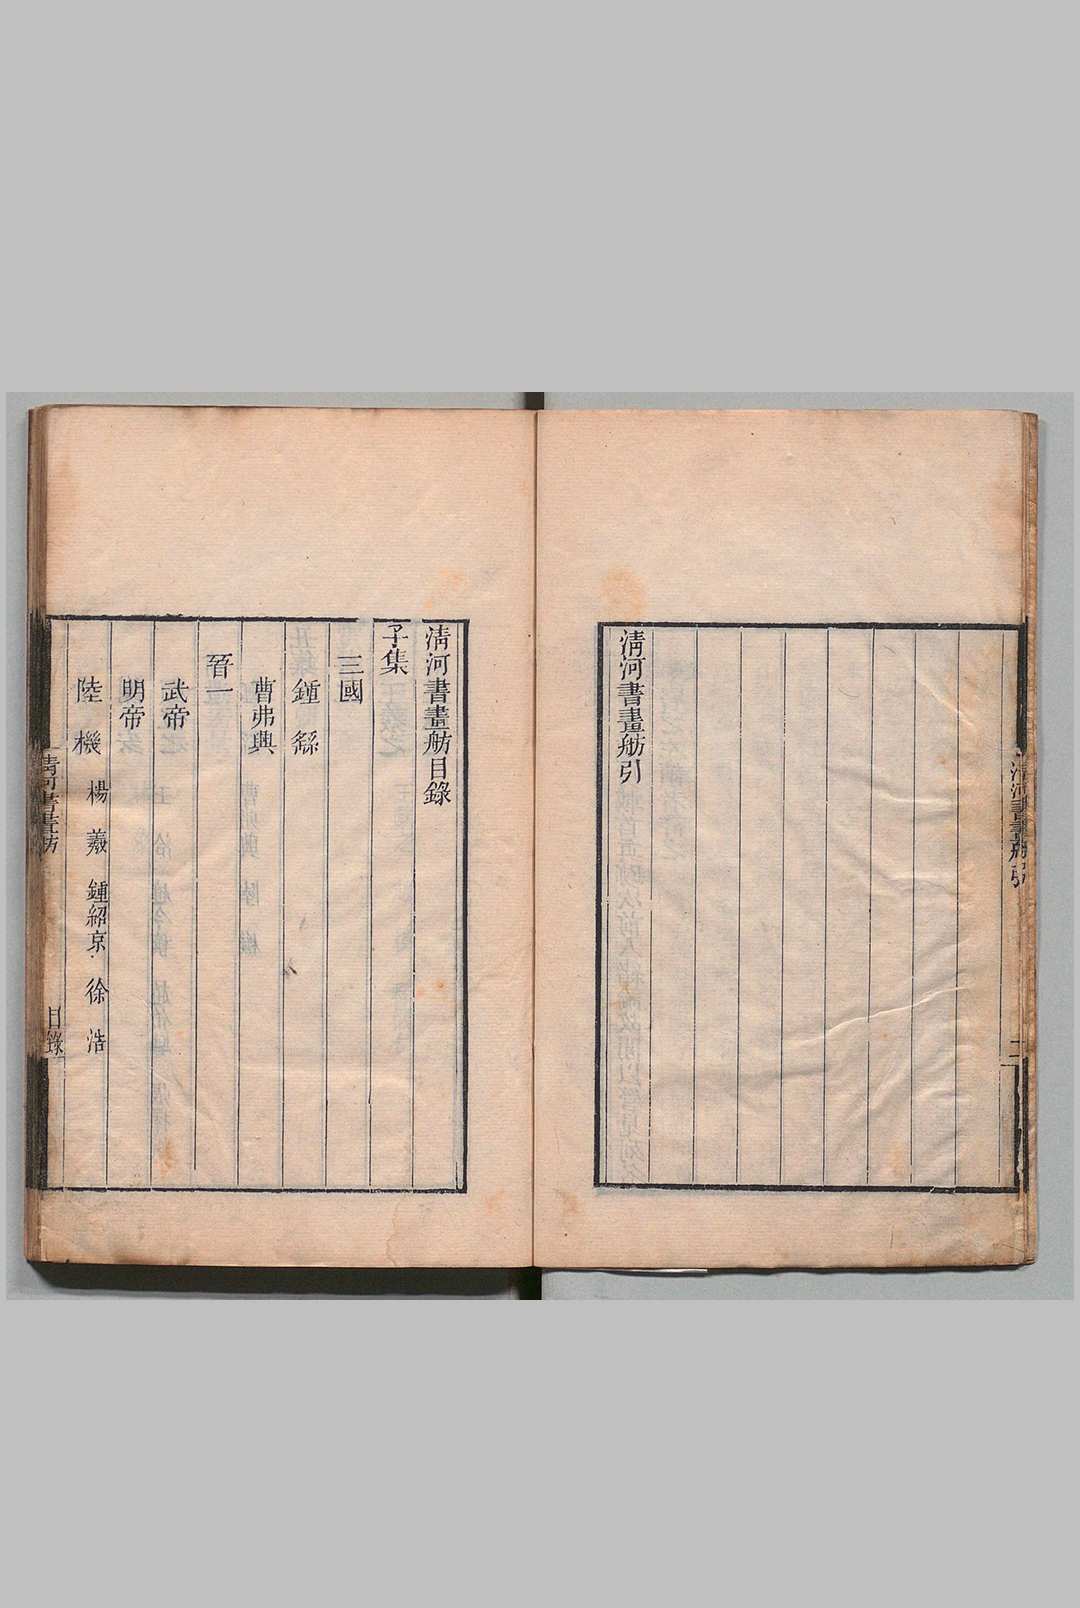 清河書畫舫引
清河書畫舫引
二
清河書畫舫目錄
子集
三國
鍾繇
曹弗興
晉一
武帝
明帝
陸機 楊羲 鍾紹京 徐浩
清河書畫舫
目錄